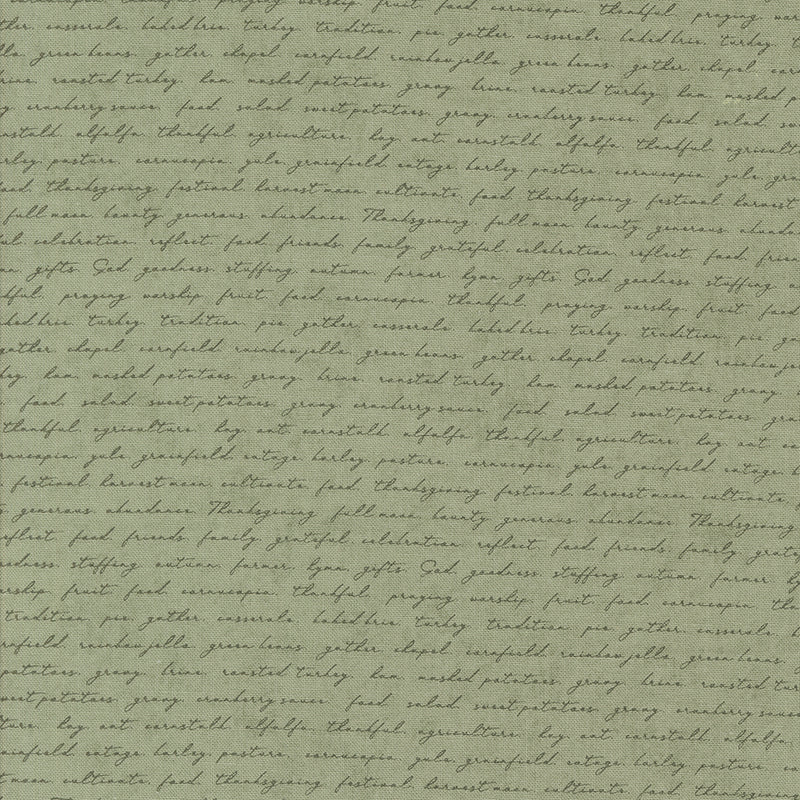 praying worship. fruit. food. cornucopia. thankful. praying
casserole. baked brie. turkey. tradition. pie. gather. casserole. baked brie. turkey.
green beans. gather. chapel. cornfield. rainbow jello. green beans. gather. chapel.
brine. roasted turkey. ham. mashed potatoes. gravy. brine. roasted turkey. ham. mashed
cranberry sauce. food. salad. sweet potatoes. gravy. cranberry sauce. food. salad.
alfalfa. thankful. agriculture. hay. oat. cornstalk. alfalfa. thankful.
pasture. cornucopia. yule. grainfield. cotage. barley. pasture. cornucopia. yule.
food. thanksgiving. festival. harvest moon. cultivate. food. thanksgiving. festival. harvest
full moon. bounty. generous. abundance. Thanksgiving. full moon. bounty. generous.
celebration. reflect. food. friends. family. grateful. celebration. reflect. food.
gifts. God. goodness. stuffing. autumn. farmer. hymn. gifts. God. goodness. stuffing.
praying worship. fruit. food. cornucopia. thankful. praying worship. fruit. food.
turkey. tradition. pie. gather. casserole. baked brie. turkey. tradition. pie.
gather. chapel. cornfield. rainbow jello. green beans. gather. chapel. cornfield.
ham. mashed potatoes. gravy. brine. roasted turkey. ham. mashed potatoes. gravy.
food. salad. sweet potatoes. gravy. cranberry sauce. food. salad. sweet potatoes.
thankful. agriculture. hay. oat. cornstalk. alfalfa. thankful. agriculture. hay. oat.
yule. grainfield. cotage. barley. pasture. cornucopia. yule. grainfield. cotage.
festival. harvest moon. cultivate. food. thanksgiving. festival. harvest moon. cultivate.
generous. abundance. Thanksgiving. full moon. bounty. generous. abundance. Thanksgiving.
reflect. food. friends. family. grateful. celebration. reflect. food. friends. family.
stuffing. autumn. farmer. hymn. gifts. God. goodness. stuffing. autumn. farmer.
fruit. food. cornucopia. thankful. praying worship. fruit. food. cornucopia.
tradition. pie. gather. casserole. baked brie. turkey. tradition. pie. gather. casserole.
rainbow jello. green beans. gather. chapel. cornfield. rainbow jello. green beans.
potatoes. gravy. brine. roasted turkey. ham. mashed potatoes. gravy. brine. roasted
sweet potatoes. gravy. cranberry sauce. food. salad. sweet potatoes. gravy. cranberry sauce.
hay. oat. cornstalk. alfalfa. thankful. agriculture. hay. oat. cornstalk. alfalfa.
cotage. barley. pasture. cornucopia. yule. grainfield. cotage. barley. pasture.
moon. cultivate. food. thanksgiving. festival. harvest moon. cultivate. food. thanksgiving.